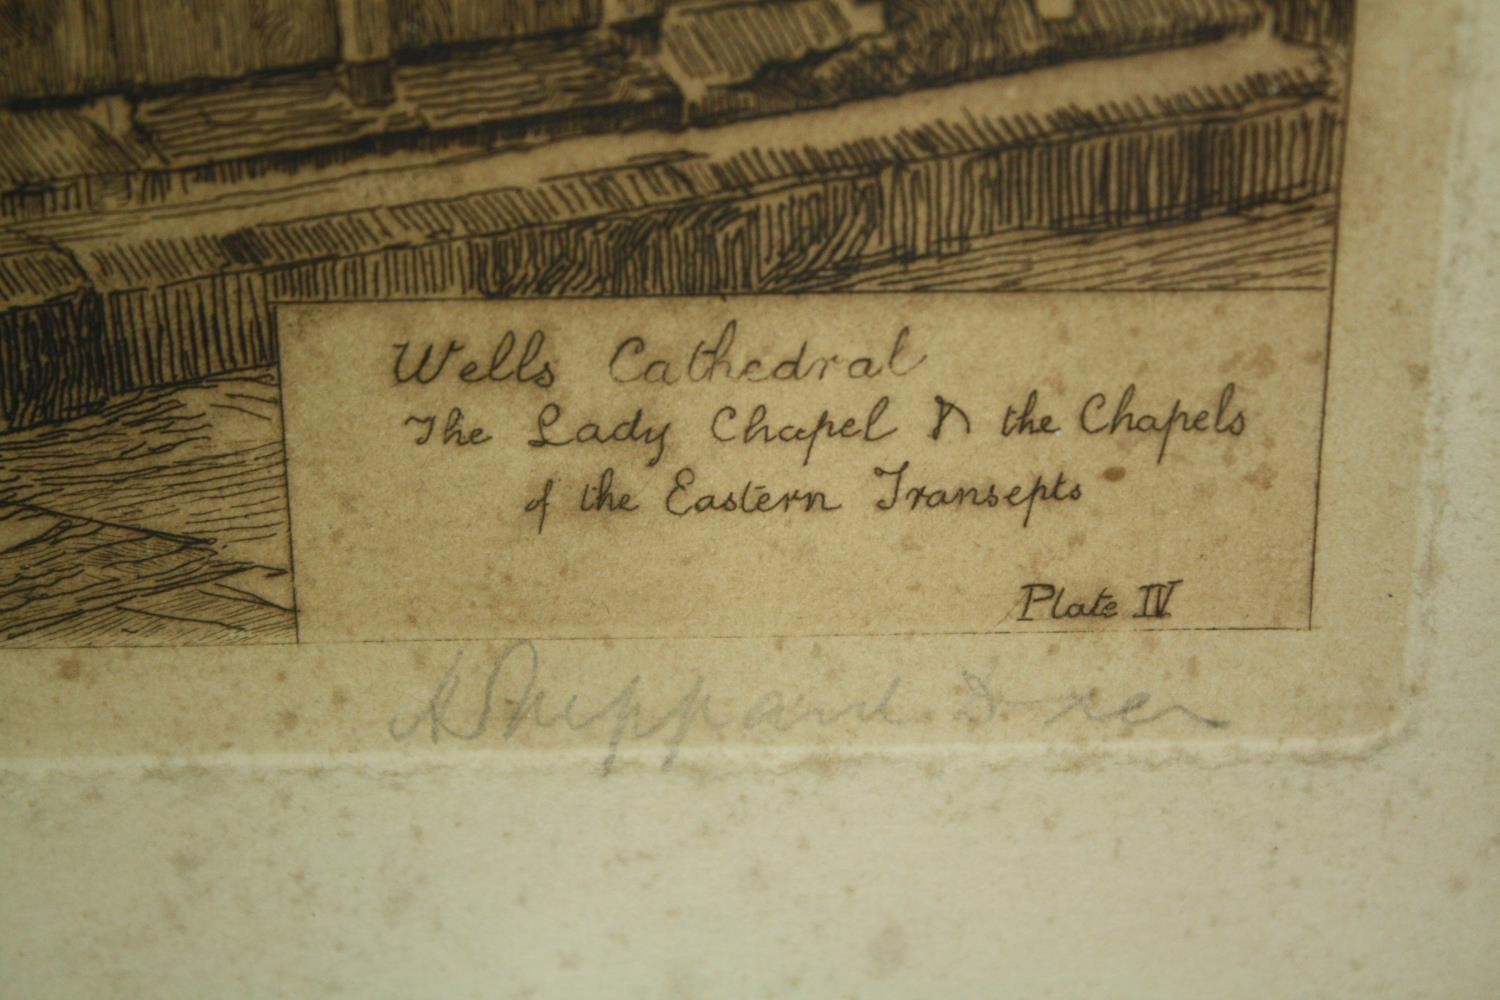 Wells Cathedral
The Lady Chapel & the Chapels
of the Eastern Transepts
Plate IV
A Sheppard Dale